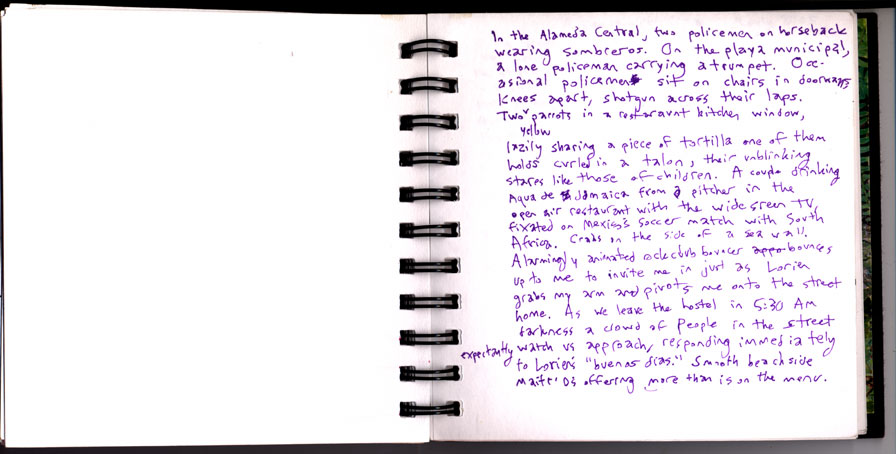 In the Alameda Central, two policemen on horseback
wearing sombreros. On the playa municipal,
a lone policeman carrying a trumpet. Occ-
asional policemen sit on chairs in doorways
knees apart, shotgun across their laps.
Two yellow parrots in a restaraunt kitchen window,
lazily sharing a piece of tortilla one of them
holds curled in a talon, their unblinking
stares like those of children. A couple drinking
Aqua de Jamaica from a pitcher in the
open air restaurant with the wide screen TV,
fixated on Mexico's soccer match with South
Africa. Crabs on the side of a sea wall.
Alarmingly animated rock club bouncer bounces
up to me to invite me in just as Lorien
grabs my arm and pivots me onto the street
home. As we leave the hostel in 5:30 AM
darkness a crowd of people in the street
expectantly watch us approach, responding immediately
to Lorien's "buenos dias." Smooth beachside
maitr'Ds offering more than is on the menu.